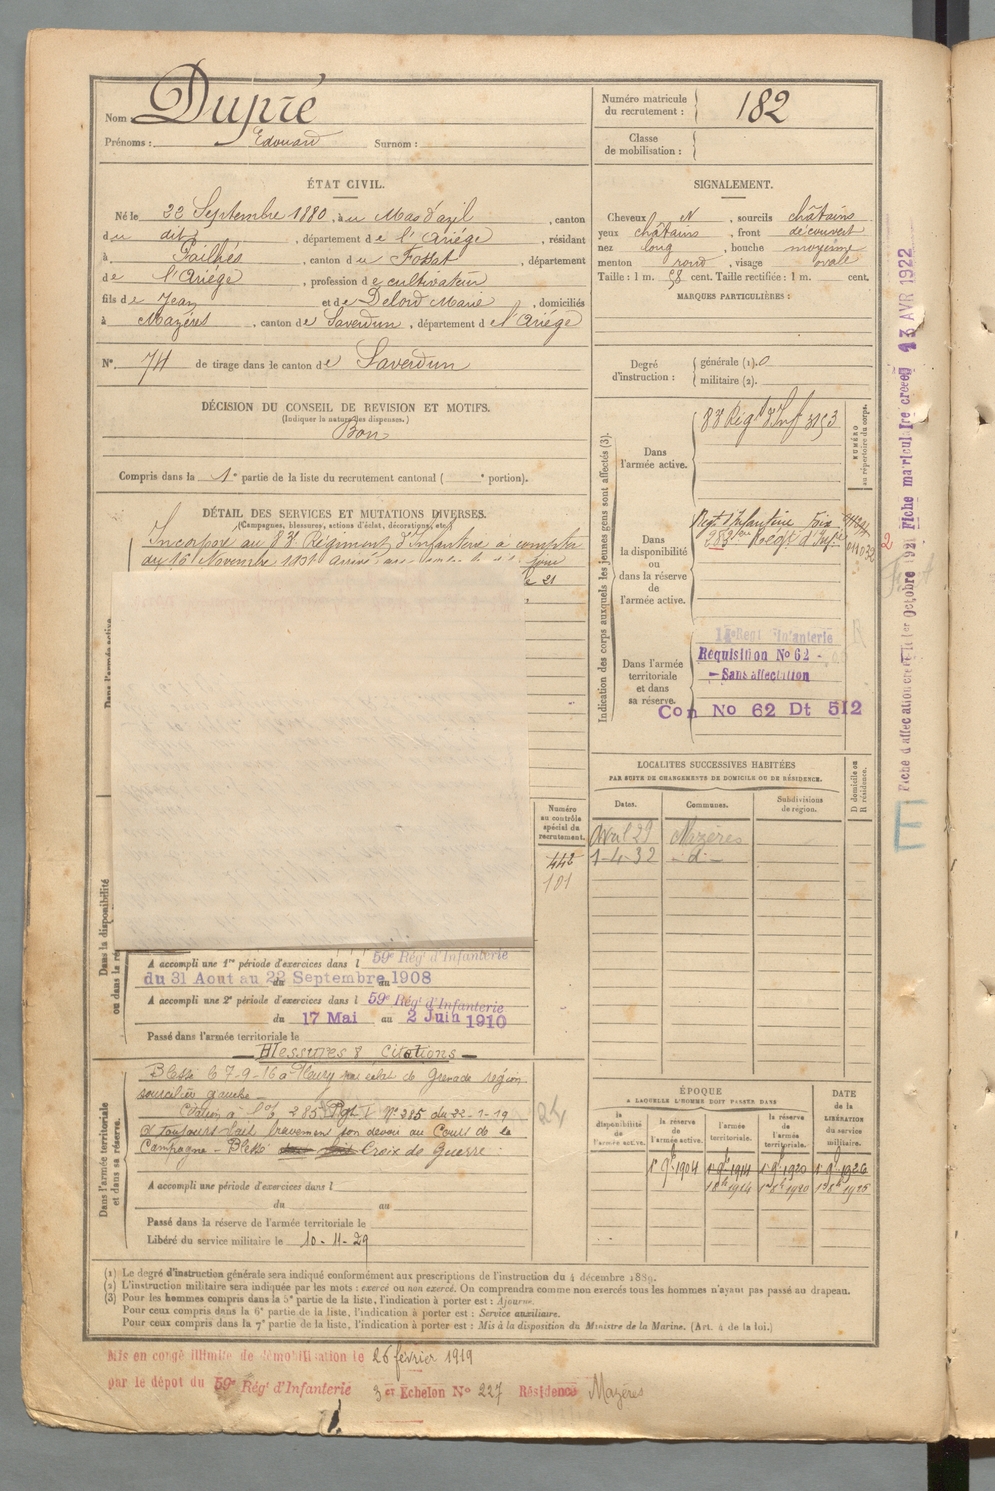 Nom : Dupré
Prénoms : Edouard Surnom :
Numéro matricule du recrutement : 182
Classe de mobilisation :
ÉTAT CIVIL.
Né le 22 Septembre 1880, à u Mas d'azil, canton
du dit, département de l'Ariège, résidant
à Pailhès, canton du Fossat, département
de l'Ariège, profession de cultivateur
fils de Jean et de Delord Marie, domiciliés
à Mazères, canton de Saverdun, département de l'Ariège
N° 74 de tirage dans le canton de Saverdun
SIGNALEMENT.
Cheveux N, sourcils châtains
yeux châtains, front découvert
nez long, bouche moyenne
menton rond, visage ovale
Taille : 1 m. 58 cent. Taille rectifiée : 1 m. cent.
MARQUES PARTICULIÈRES :
Degré d'instruction : générale (1). 0
militaire (2).
DÉCISION DU CONSEIL DE REVISION ET MOTIFS.
(Indiquer la nature des dispenses.)
Bon
Compris dans la 1e partie de la liste du recrutement cantonal ( e portion).
DÉTAIL DES SERVICES ET MUTATIONS DIVERSES.
(Campagnes, blessures, actions d'éclat, décorations, etc.)
Incorporé au 83e Régiment d'Infanterie à compter
du 16 Novembre 1901
jour
21
Dans l'armée active.
Dans la disponibilité ou dans la
Indication des corps auxquels les jeunes gens sont affectés (3).
Dans l'armée active.
83e Régt d'Inf 3153
NUMÉRO au répertoire du corps.
Dans la disponibilité ou dans la réserve de l'armée active.
Régt d'Infanterie Foix
283me Regt d'Infie
Dans l'armée territoriale et dans sa réserve.
Régt Infanterie
Réquisition No 62
- Sans affectation
Con No 62 Dt 512
R
Fiche d affectation créée le 1er Octobre 1921 Fiche matriculaire créée 13 AVR 1922
2
E
LOCALITES SUCCESSIVES HABITÉES
PAR SUITE DE CHANGEMENTS DE DOMICILE OU DE RÉSIDENCE.
D domicile ou R résidence.
Dates. Communes. Subdivisions de région.
Avril 29 Mazères
1-4-32 - d -
Numéro au contrôle spécial du recrutement.
442
101
A accompli une 1re période d'exercices dans l 59e Régt d'Infanterie
du 31 Aout au 22 Septembre 1908
A accompli une 2e période d'exercices dans l 59e Régt d'Infanterie
du 17 Mai au 2 Juin 1910
Passé dans l'armée territoriale le
Blessures & Citations
Blessé le 7-9-16 à Fleury par éclat de Grenade région
sourcilière gauche
Citation à l'O/ 285 Rgt I N° 285 du 22-1-19
A toujours fait bravement son devoir au Cours de la
Campagne - Blessé Croix de Guerre
Dans l'armée territoriale et dans sa réserve.
A accompli une période d'exercices dans l
du au
Passé dans la réserve de l'armée territoriale le
Libéré du service militaire le 10-11-29
ÉPOQUE
A LAQUELLE L'HOMME DOIT PASSER DANS
la disponibilité de l'armée active.
la réserve de l'armée active.
l'armée territoriale.
la réserve de l'armée territoriale.
DATE de la LIBÉRATION du service militaire.
1r 9b 1904 1r 9b 1914 1r 9b 1920 1r 9b 1926
1r 8b 1914 1r 8b 1920 1r 8b 1926
(1) Le degré d'instruction générale sera indiqué conformément aux prescriptions de l'instruction du 4 décembre 1889.
(2) L'instruction militaire sera indiquée par les mots : exercé ou non exercé. On comprendra comme non exercés tous les hommes n'ayant pas passé au drapeau.
(3) Pour les hommes compris dans la 5e partie de la liste, l'indication à porter est : Ajourné.
Pour ceux compris dans la 6e partie de la liste, l'indication à porter est : Service auxiliaire.
Pour ceux compris dans la 7e partie de la liste, l'indication à porter est : Mis à la disposition du Ministre de la Marine. (Art. 4 de la loi.)
Mis en congé illimité de démobilisation le 26 février 1919
par le dépôt du 59e Régt d'Infanterie 3 er Echelon No 227 Résidence Mazères